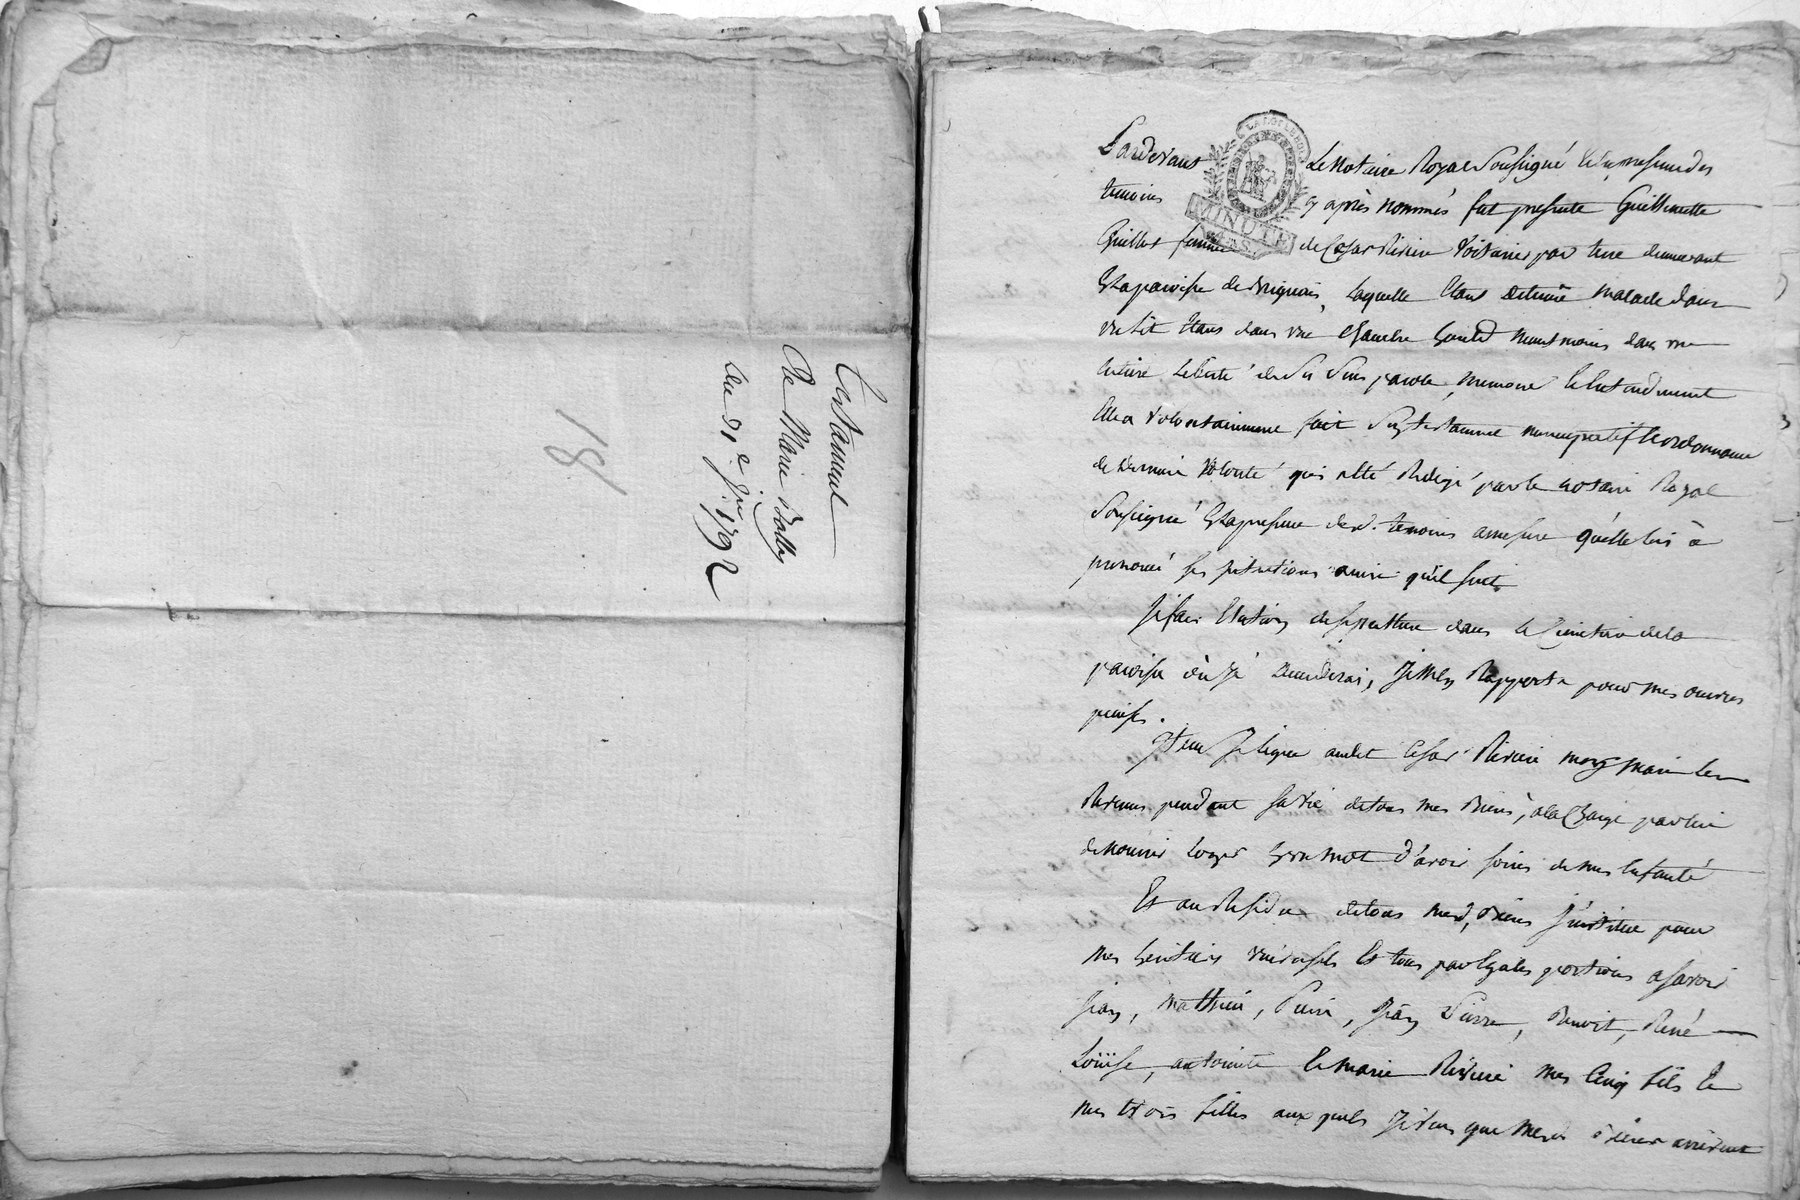 Testament
De Marie Dalby
du 31e Jer 1792
18
LA LOI LE ROI
MINUTE
4 S.
Pardevant Le Notaire Royal Soussigné Et en presence des
temoins cy après nommés fut presente Guillemette
Guillot femme de Cesar Riviere Voiturier par terre demeurant
En la paroisse de Brignais, laquelle Etant detenüe malade dans
un lit Etans dans une Chambre haute neantmoins dans une
Entiere Liberté de Ses Sens parole, memoire Et Entendement
Elle a Volontairement fait Son testament nuncupatif Et ordonnance
de derniere Volonté qui a Eté Redigé par le notaire Royal
Soussigné En la presence desd. temoins a mesure qu'elle lui a
prononcé ses intentions ainsi qu'il suit
Je fais Election de sepulture dans le Cimetiere de la
paroisse où Je decederai, Je m'En Rapporte pour mes œuvres
pieuses.
Item Je legue audit Cesar Riviere mon mari les
Revenus pendant sa vie de tous mes Biens, a la Charge par lui
de nourrir loger En un mot d'avoir soins de mes Enfants
Et au Residu de tous mesd. Biens J'institue pour
mes heritiers universels Et tous par Egales portions a savoir
Jean, Matthieu, Pierre, Jean Pierre, Benoit, René
Loüise, antoinette Et Marie Riviere mes Cinq fils Et
mes trois filles aux quels Je veux que mesd. Biens arrivent